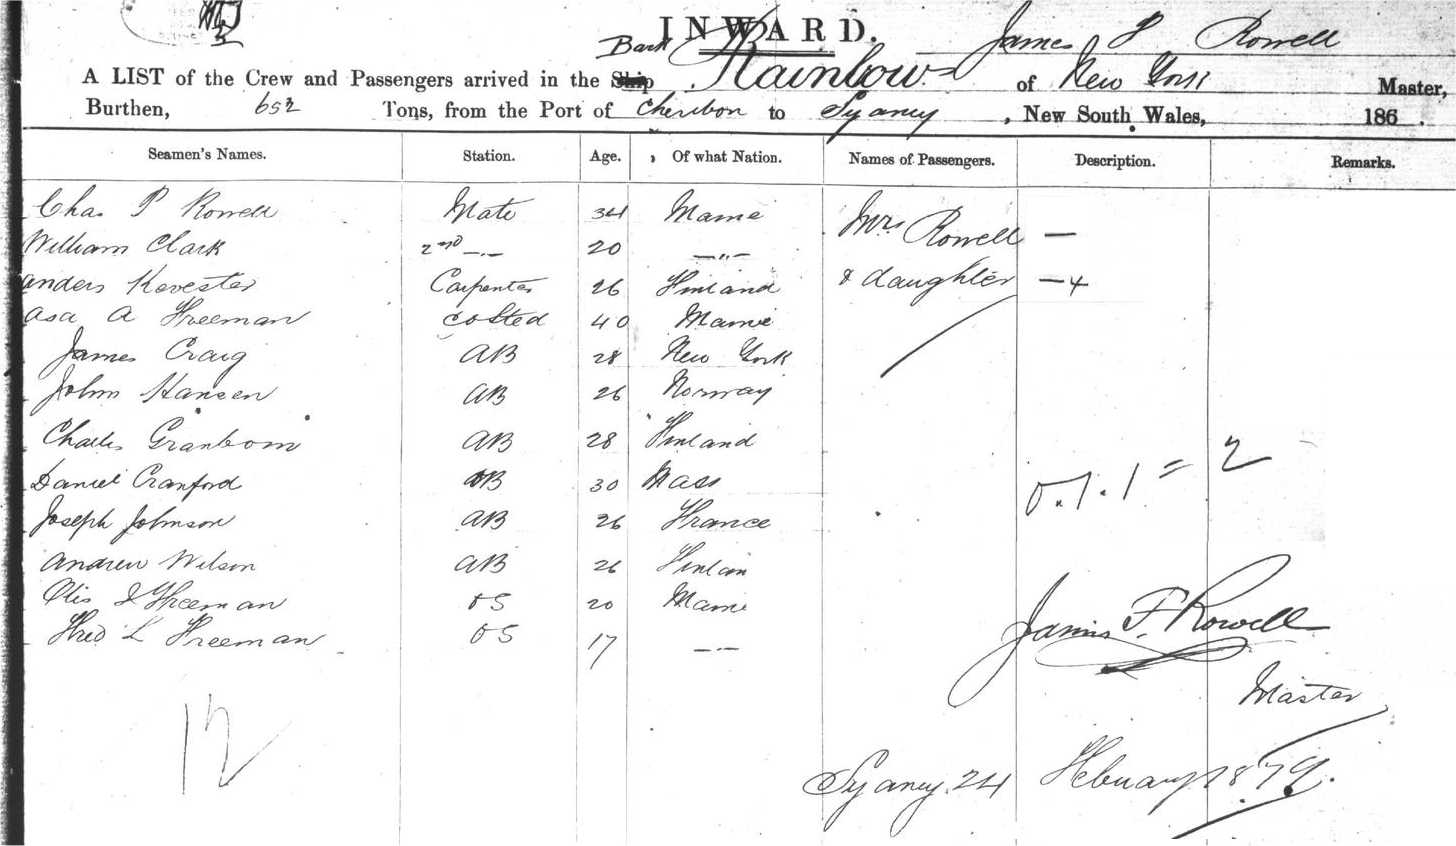 INWARD.
Bark James F Rowell
A LIST of the Crew and Passengers arrived in the Ship Rainbow of New York Master,
Burthen, 652 Tons, from the Port of Cheribon to Sydney, New South Wales, 186
Seamen's Names. Station. Age. Of what Nation. Names of Passengers. Description. Remarks.
Chas P Rowell Mate 34 Maine Mrs Rowell —
William Clark 2nd —"— 20 —"—
Anders Kevester Carpenter 26 Finland & daughter — 4
Asa A Freeman C & Sted 40 Maine
James Craig AB 28 New York
John Hansen AB 26 Norway
Charles Granbom AB 28 Finland
Daniel Cranford AB 30 Mass
0.1.1 = 2
Joseph Johnson AB 26 France
Andrew Wilson AB 26 Finlan
Otis Freeman OS 20 Maine
James F. Rowell
Fred L Freeman OS 17 —"—
Master
12
Sydney 24 Febuary 1879.